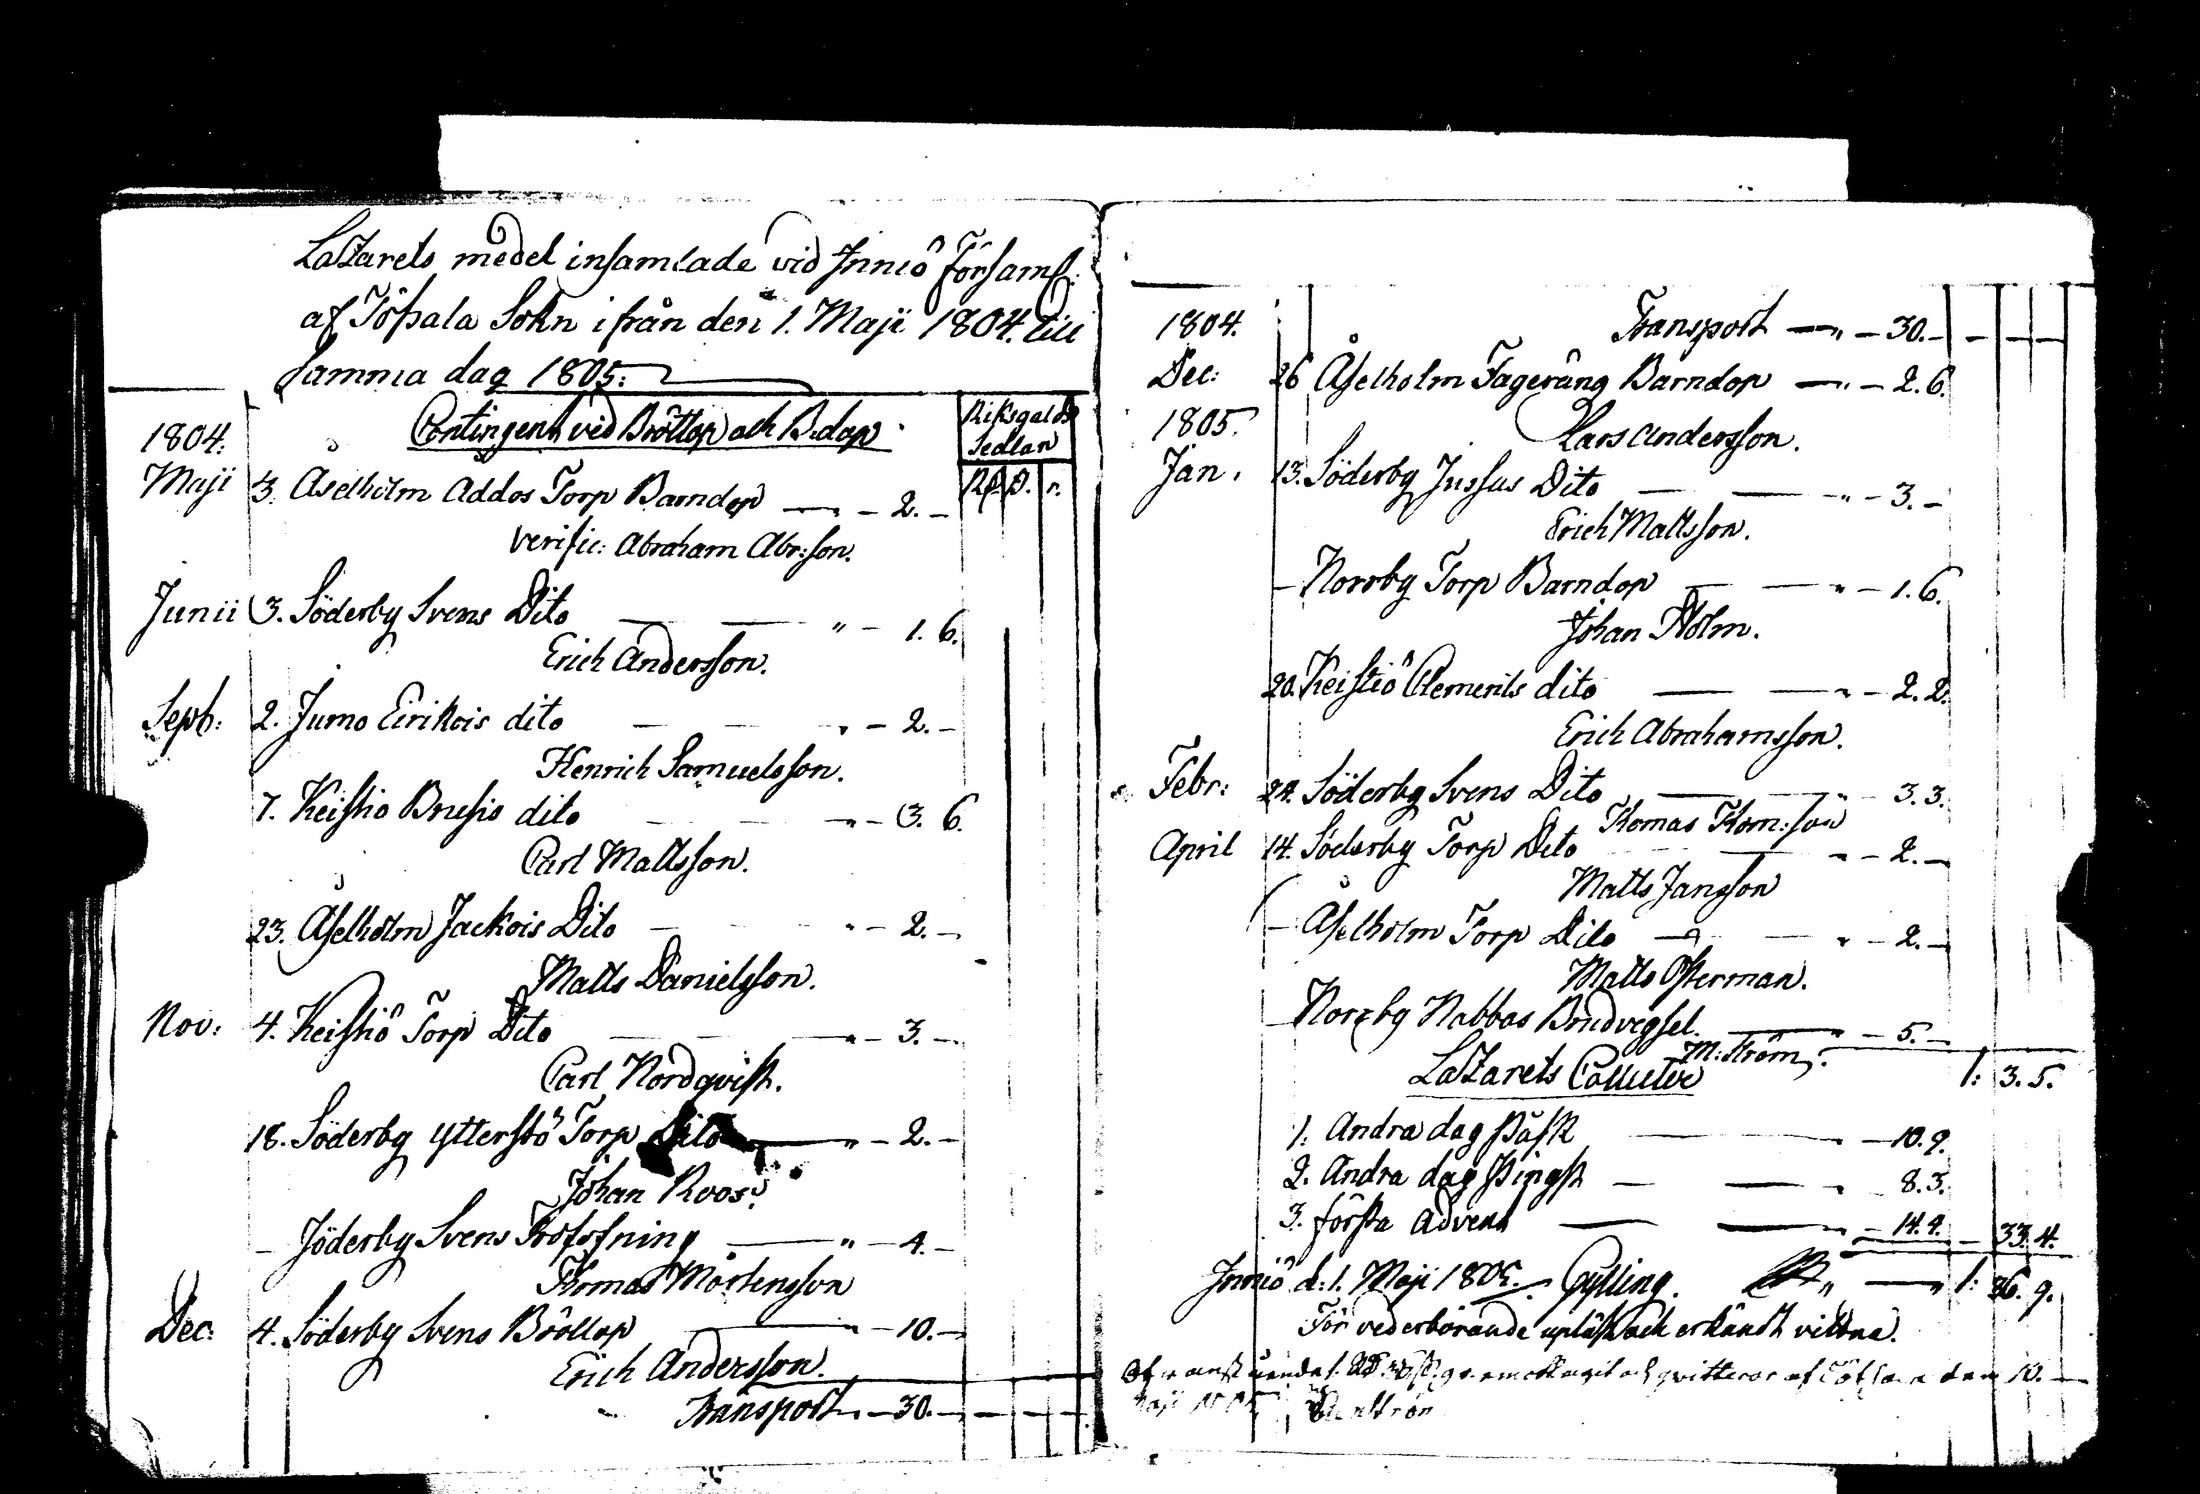 Lazarets medel insamlade vid Inniö Församl:
af Töfsala Sokn ifrån den 1. Maji 1804. till
samma dag 1805.
Contingent vid Bröllop och B.dop
Riksgalds
Sedlar
1804.
Rd. s. r.
Maji 3. Åselholm Addos Torp Barndop — " — 2. —
verific: Abraham Abr:son.
Junii 3. Söderby Svens Dito — — " — 1. 6.
Erich Andersson.
Sept: 2. Jumo Eirikois dito — — " — 2. —
Henrich Samuelsson.
7. Keistiö Brusis dito — — " — 3. 6.
Carl Mattsson.
23. Åselholm Jackois Dito — — " — 2. —
Matts Danielsson.
Nov: 4. Keistiö Torp Dito — — " — 3. —
Carl Nordqvist.
18. Söderby Ytterstö Torp Dito — " — 2. —
Johan Roos.
— Söderby Svens — " — 4. —
Thomas Mårtensson
Dec: 4. Söderby Svens Bröllop — " — 10. —
Erich Andersson.
Transport — 30. — — — —
1804. Transport — " — 30. — — — —
Dec: 26 Åselholm Fageräng Barndop — " — 2. 6.
1805. Lars Andersson.
Jan. 13. Söderby Jussas Dito — — " — 3. —
Erich Mattsson.
— Norrby Torp Barndop — — " — 1. 6.
Johan Holm.
20. Keistiö Clements dito — — " — 2. 2.
Erich Abrahamsson.
Febr: 24. Söderby Svens Dito — " — 3. 3.
Thomas Thom:son
April 14. Söderby Torp Dito — " — 2. —
Matts Jansson
— Åselholm Torp Dito — — " — 2. —
Matts Österman.
— Norrby Nabbas Brudvigsel. — " — 5. —
M: Ström.
Lazarets Collecter 1: 3. 5.
1. Andra dag Påsk — " — 10. 9.
2. Andra dag Pingst — — " 8. 3.
3. första Advent — — " — 14. 4. — 33. 4.
Inniö d: 1. Maji 1805. Gylling. " — " 1: 36. 9.
För vederbörande upläst och erkändt vittna.
emottagit och qvitteras af Töfsala den 10.
Maji